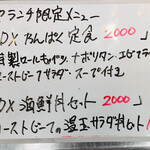 ランチ限定メニュー
DX わんぱく定食 2000
製ロールキャベツ ナポリタン・エビフライ
ーストビーフサラダ・スープ付き
DX 海鮮丼セット 2000
ーストビーフ& 温玉サラダ丼セット